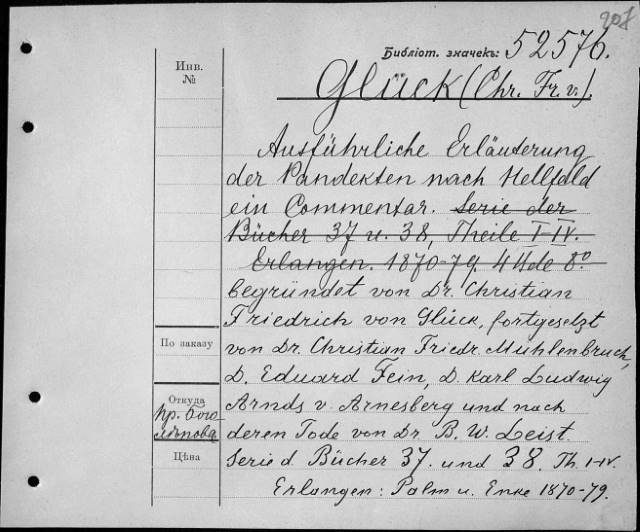 208
Библіот. значекъ: 52576.
Инв.
№
Glück (Chr. Fr. v.).
Ausführliche Erläuterung
der Pandekten nach Hellfeld
ein Commentar. Serie der
Bücher 37 u. 38, Theile I-IV.
Erlangen. 1870-79. 4 Bde 8º
begründet von Dr. Christian
Friedrich von Glück, fortgesetzt
По заказу
von Dr. Christian Friedr. Mühlenbruch,
D. Eduard Fein, D. Karl Ludwig
Откуда
пр. Бого
лѣпова
Arnds v. Arnesberg und nach
deren Tode von Dr. B. W. Leist.
Цѣна
Serie d. Bücher 37. und 38. Th. I-IV.
Erlangen: Palm u. Enke 1870-79.